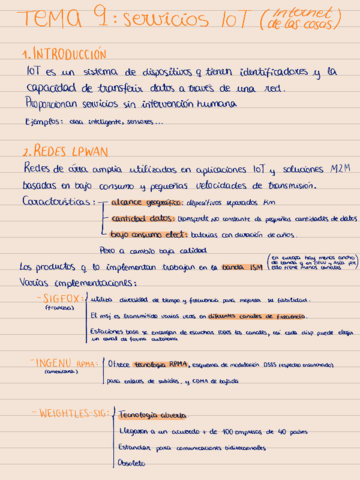 TEMA 9: servicios IoT (Internet de las cosas)
1. INTRODUCCIÓN
IoT es un sistema de dispositivos q tienen identificadores y la
capacidad de transferir datos a través de una red.
Proporcionan servicios sin intervención humana
Ejemplos: casa inteligente, sensores...
2. REDES LPWAN
Redes de area amplia utilizadas en aplicaciones IoT y soluciones M2M
basadas en bajo consumo y pequeñas velocidades de transmisión.
Características: - alcance geográfico: dispositivos separados Km
- cantidad datos: transporte no constante de pequeñas cantidades de datos
- bajo consumo elect: baterías con duración de años.
Pero a cambio baja calidad
Los productos q lo implementan trabajan en la banda ISM (en Europa hay menos ancho de banda q en EEUU y Asia por esto tiene menos canales)
Varias implementaciones:
- SIGFOX: utiliza diversidad de tiempo y frecuencia para mejorar su fiabilidad.
(francesa) El msj es transmitido varias veces en diferentes canales de frecuencia.
Estaciones base se encargan de escuchar todos los canales, así cada disp puede elegir
un canal de forma autónoma
- INGENU RPMA: Ofrece tecnología RPMA, esquema de modulación DSSS (espectro ensanchado)
(americana) para enlaces de subida, y CDMA de bajada
- WEIGHTLES-SIG: Tecnología abierta
Llegaron a un acuerdo + de 100 empresas de 40 países
Estandar para comunicaciones bidireccionales
Obsoleto